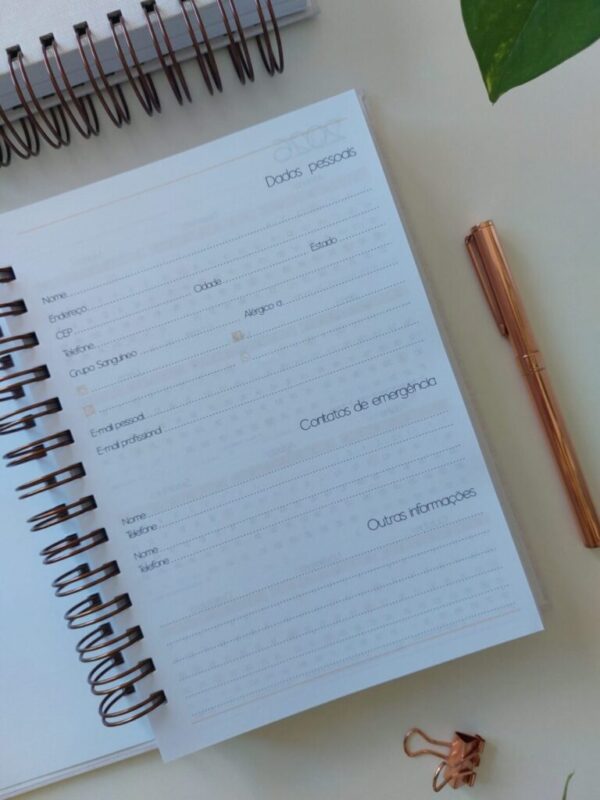 Dados pessoais
Nome
Endereço
CEP Cidade Estado
Telefone
Grupo Sanguíneo Alérgico a:
E-mail pessoal
E-mail profissional
Contatos de emergência
Nome
Telefone
Nome
Telefone
Outras informações